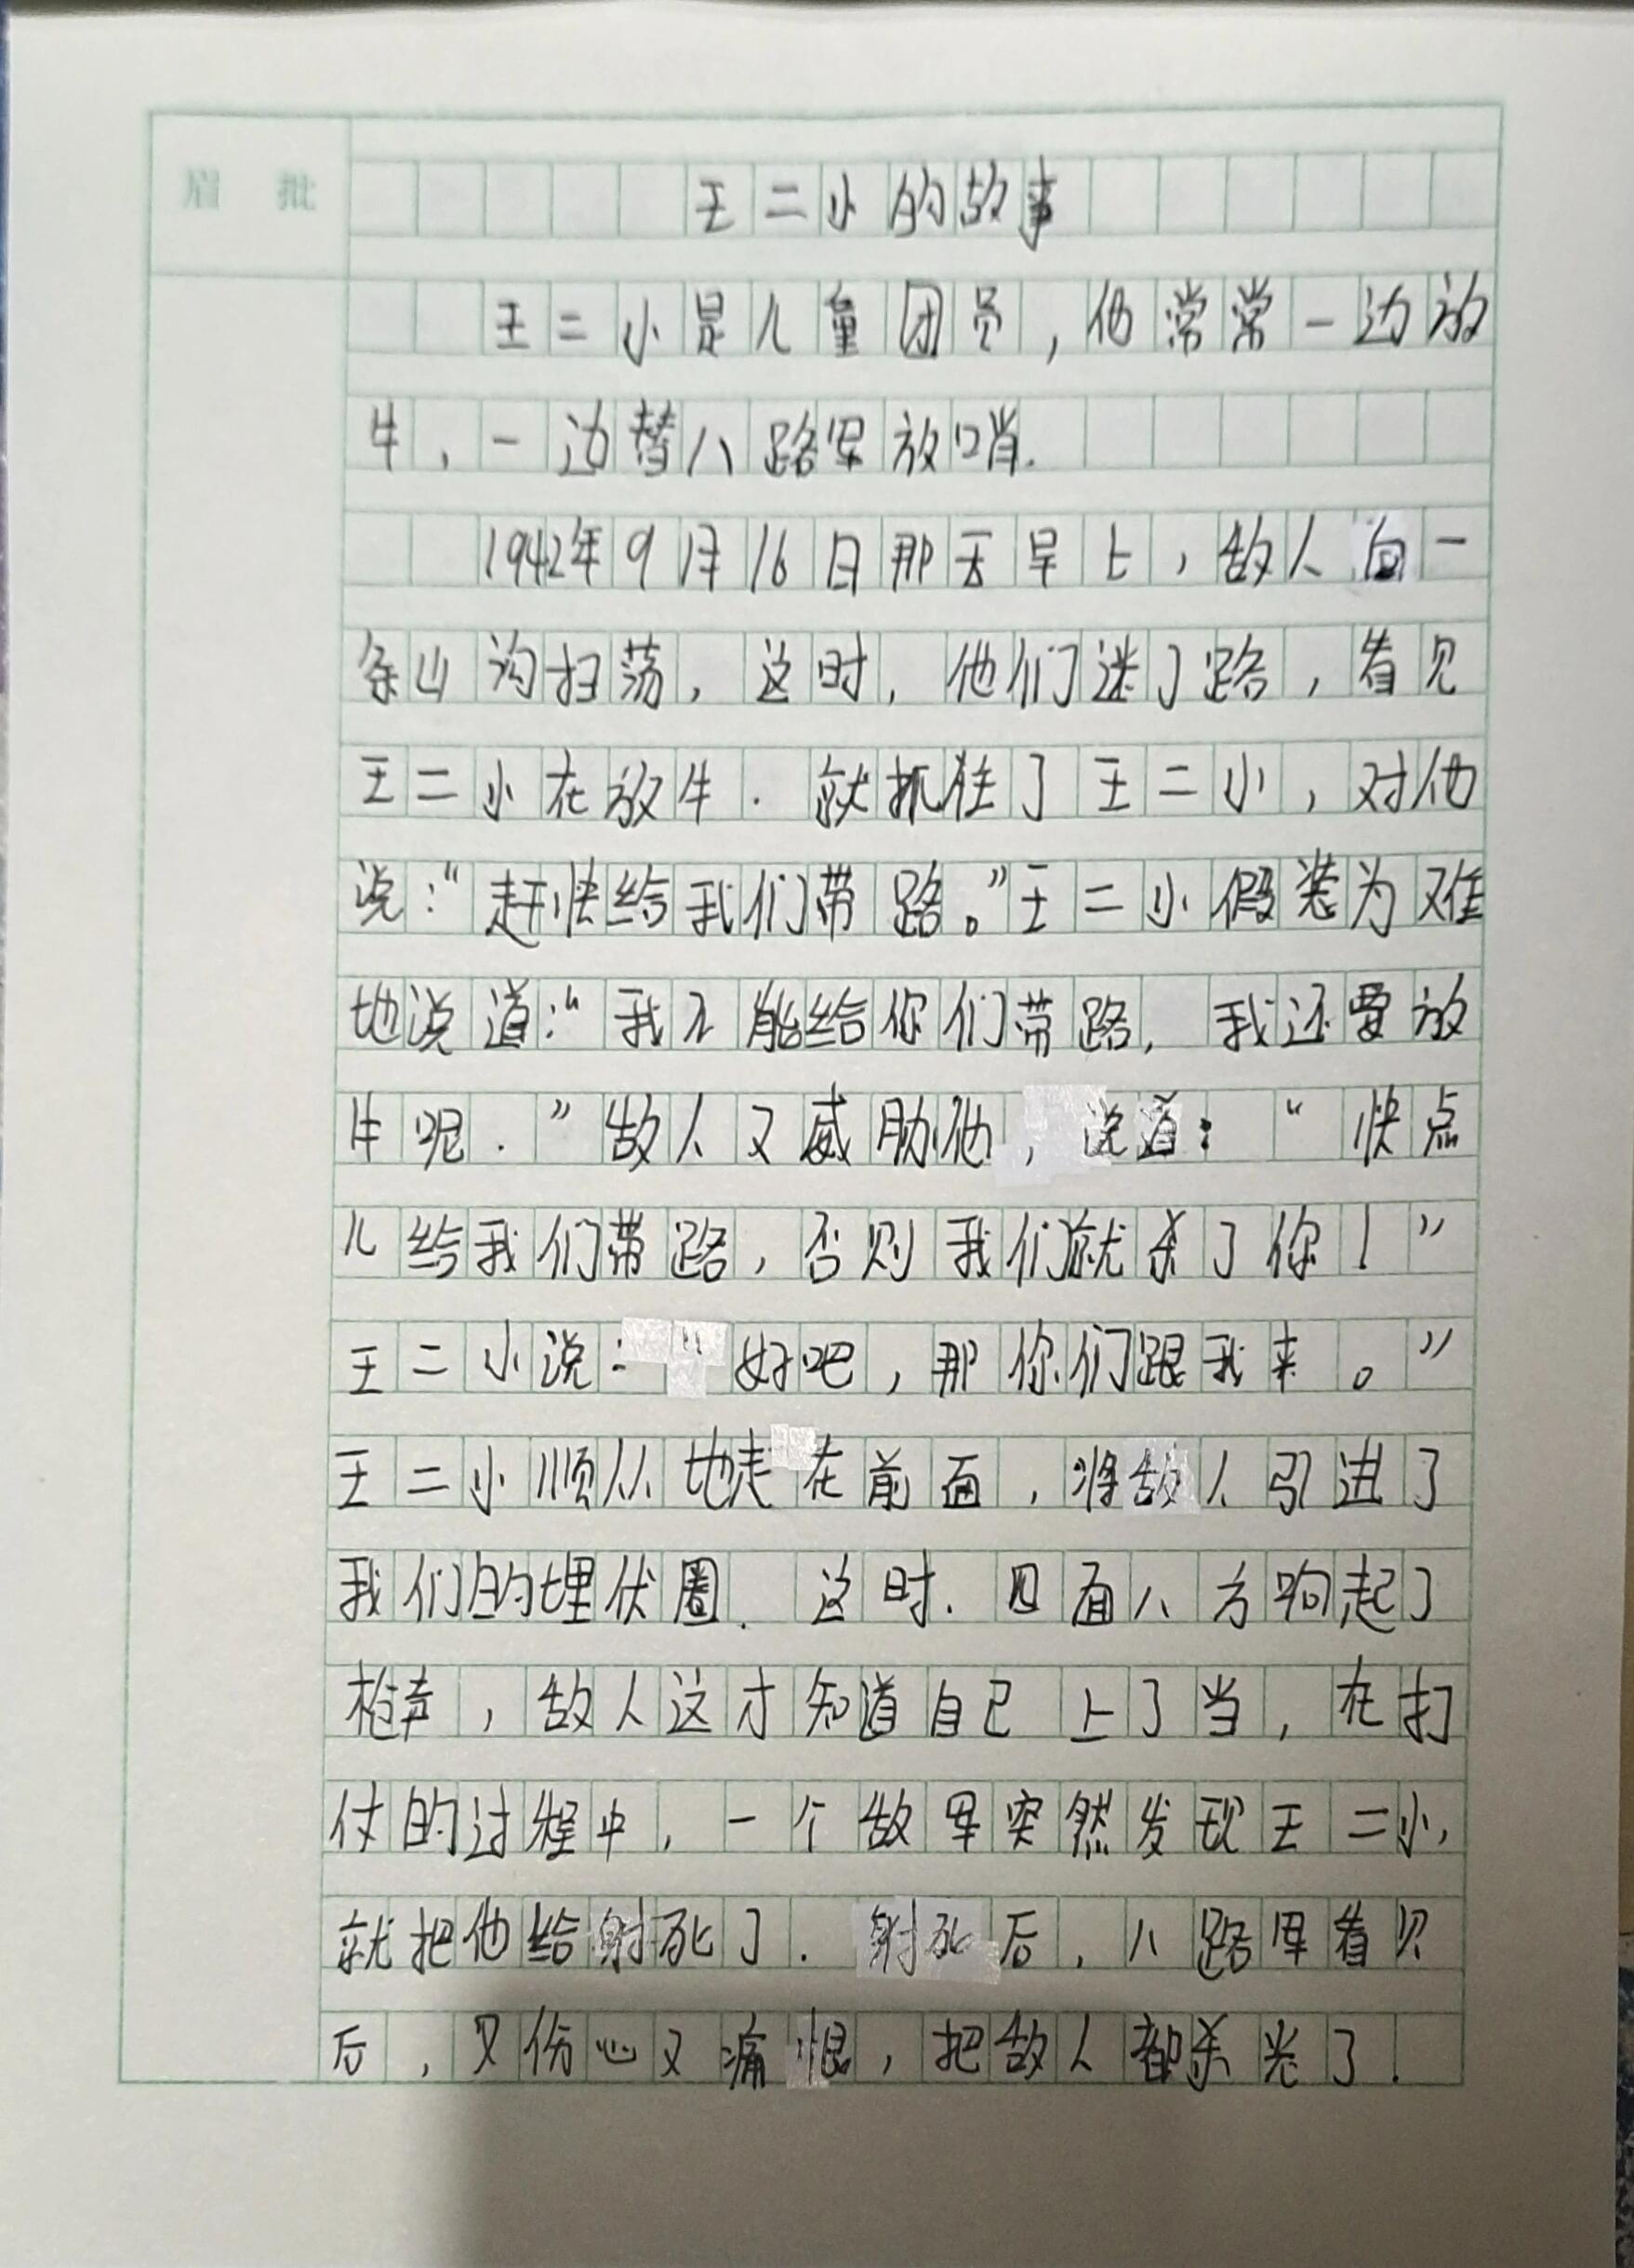 眉 批
王二小的故事
王二小是儿童团员，他常常一边放
牛，一边替八路军放哨.
1942年9月16日那天早上，敌人向一
条山沟扫荡，这时，他们迷了路，看见
王二小在放牛.就抓住了王二小，对他
说：“赶快给我们带路。”王二小假装为难
地说道：“我不能给你们带路，我还要放
牛呢.”敌人又威胁他，说道：“快点
儿给我们带路，否则我们就杀了你！”
王二小说：“好吧，那你们跟我来。”
王二小顺从地走在前面，将敌人引进了
我们的埋伏圈.这时.四面八方响起了
枪声，敌人这才知道自己上了当，在打
仗的过程中，一个敌军突然发现王二小，
就把他给射死了.射死后，八路军看见
后，又伤心又痛恨，把敌人都杀光了.